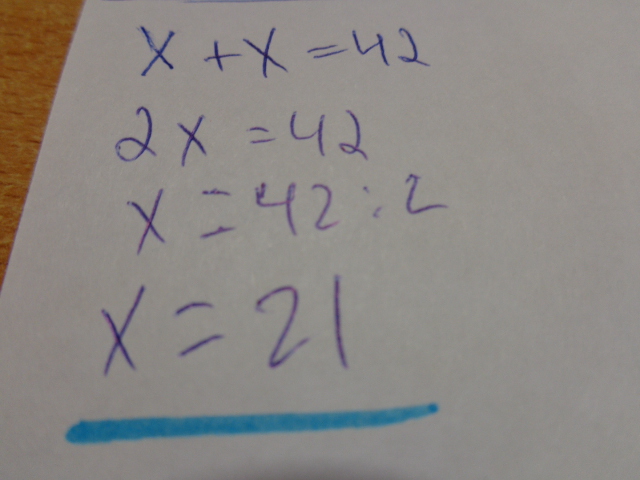 x + x = 42
2x = 42
x = 42 : 2
x = 21